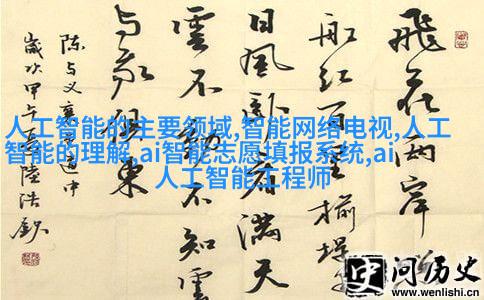 飛花兩岸
船紅百里榆堤
日風臥看滿天
雲不動不知雲
与我俱東
陈与义襄邑道中
歲次甲午春陸浩欽
人工智能的主要领域,智能网络电视,人工
智能的理解,ai智能志愿填报系统,ai
人工智能工程师
问历史
www.wenlishi.cn